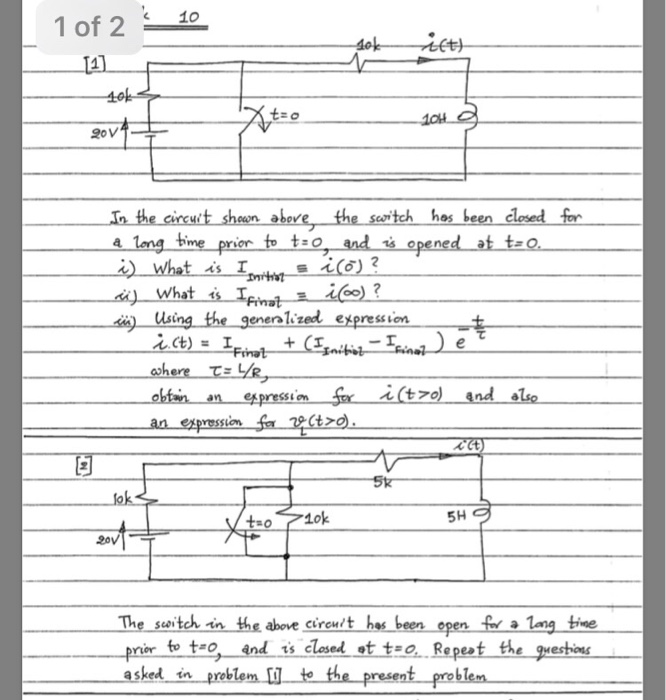 1 of 2
10
[1]
10k
i(t)
10k
t=0
20V
10H
In the circuit shown above, the switch has been closed for
a long time prior to t=0, and is opened at t=0.
i) What is I_Initial ≡ i(0⁻) ?
ii) What is I_Final ≡ i(∞) ?
iii) Using the generalized expression
i(t) = I_Final + (I_Initial − I_Final) e^(−t/τ)
where τ = L/R,
obtain an expression for i(t>0) and also
an expression for v_L(t>0).
[2]
i(t)
5k
10k
t=0
10k
5H
20V
The switch in the above circuit has been open for a long time
prior to t=0, and is closed at t=0. Repeat the questions
asked in problem [1] to the present problem